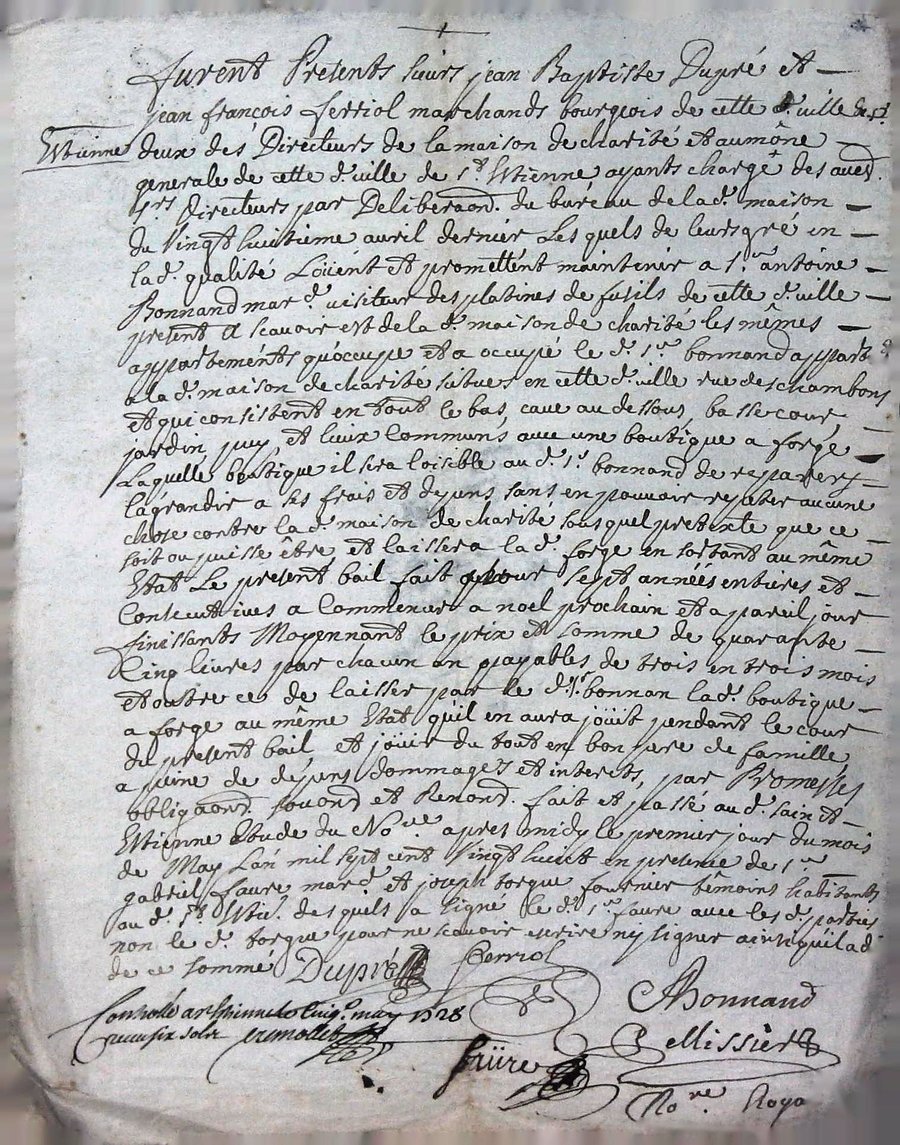 furent Presents sieurs jean Baptiste Dupré et
jean françois ferriol marchands bourgois de cette d. ville de St
Etienne deux des Directeurs de la maison de charité et aumône
generale de cette d. ville de St Etienne ayants chargé des aues
Srs Directeurs par Deliberaon. du bureau de la d. maison
du Vingt huitieme auril dernier Les quels de leurs gré en
la d. qualité Loüent et promettent maintenir a Sr antoine
Bonnand mard. uisiteur des platines de fusils de cette d. ville
present A scauoir est de la d. maison de charité les mêmes
appartements qu'occupe et a occupé le d. Sr bonnand appart
a la d. maison de charité situes en cette d. ville rue des chambons
et qui consistent en tout le bas, caue au dessous, basse cour
jardin, puy, et lieux Communs auec une boutique a forge
Laquelle boutique il sera loisible au d. Sr bonnand de reparer
lagrandir a ses frais et depens sans en pouuoir repeter aucune
chose contre la d. maison de charité sous quel pretexte que ce
soit ou puisse être et laissera la d. forge en sortant au même
Etat Le present bail fait pour sept années entieres et
Consecutiues a Commencer a noel prochain et a pareil jour
finissants Moyennant le prix et somme de quarante
Cinq liures par chacun an payables de trois en trois mois
et outre ce de laisser par le d. Sr bonnan la d. boutique
a forge au même Etat quil en aura joüit pendant le cour
du present bail et joüir du tout en bon pere de famille
a peine de depens dommages et interets, par Promesses
obligaond. soumd et Renond. fait et passé au d. saint
Ettienne Etude du Nore apres midy le premier jour du mois
de May Lan mil sept cent Vingt huict en presence de Sr
gabriel faure mard. et joseph torque fournier têmoins habitants
au d. St Etie. desquels a signé le d. Sr faure auec les d. parties
non le d. torque pour ne scauoir ecrire ny signer ainsi quil a d.
de ce sommé Dupré ferriol
Controllé a St Etienne le Cinqe. may 1728 ABonnand
receu six sols cremollet Pellissier
faüre Nore Roya